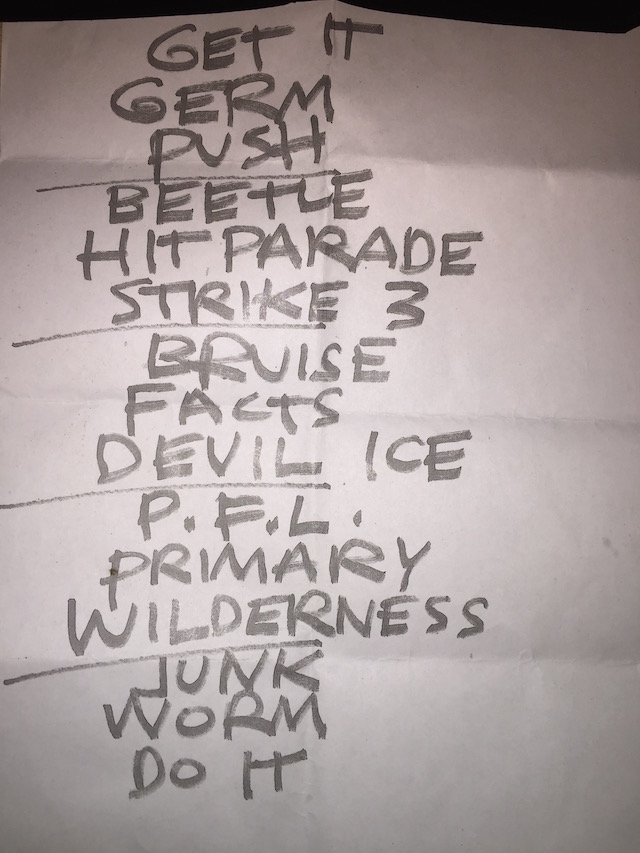 GET IT
GERM
PUSH
BEETLE
HIT PARADE
STRIKE 3
BRUISE
FACTS
DEVIL ICE
P.F.L.
PRIMARY
WILDERNESS
JUNK
WORM
DO IT